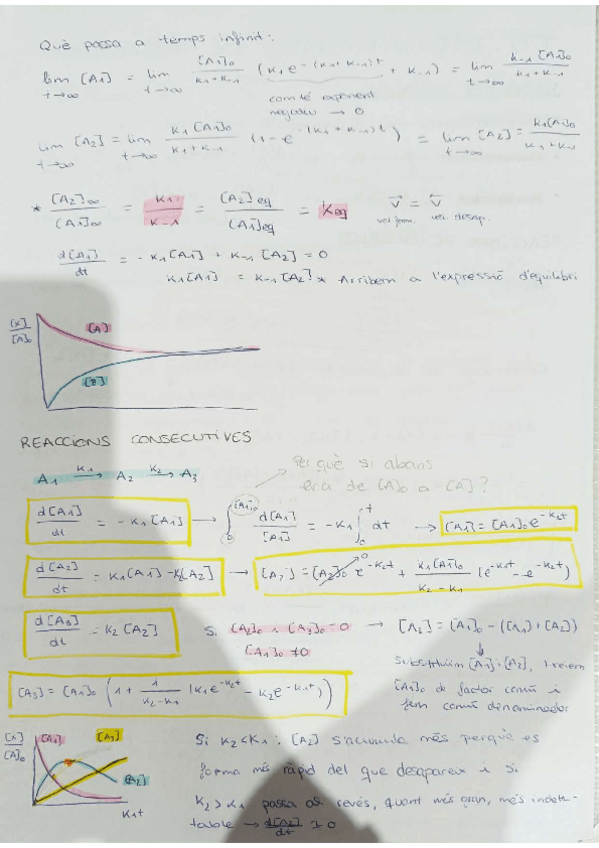 Què passa a temps infinit:
lim t→∞ [A1] = lim t→∞ [A1]₀/(k1+k-1) (k1 e^-(k1+k-1)t + k-1) = lim t→∞ k-1[A1]₀/(k1+k-1)
com té exponent
negatiu → 0
lim t→∞ [A2] = lim t→∞ k1[A1]₀/(k1+k-1) (1-e^-(k1+k-1)t) = lim t→∞ [A2] = k1[A1]₀/(k1+k-1)
* [A2]∞/[A1]∞ = k1/k-1 = [A2]eq/[A1]eq = Keq v⃗ = v⃖
d[A1]/dt = -k1[A1] + k-1[A2] = 0
k1[A1] = k-1[A2] * Arribem a l'expressió d'equilibri
[X]/[A]₀ [A]
[B]
REACCIONS CONSECUTIVES
A1 k1→ A2 k2→ A3
Per què si abans
era de [A]₀ a [A]?
d[A1]/dt = -k1[A1] → ∫ d[A1]/[A1] = -k1 ∫₀ᵗ dt → [A1] = [A1]₀e^-k1t
d[A2]/dt = k1[A1] - k2[A2] → [A2] = [A2]₀ e^-k2t + k1[A1]₀/(k2-k1) (e^-k1t - e^-k2t)
d[A3]/dt = k2[A2] Si [A2]₀ i [A3]₀=0 → [A3] = [A1]₀ - ([A1]+[A2])
[A1]₀ ≠0
substituïm [A1] i [A2], traiem
[A1]₀ de factor comú i
fem comú denominador
[A3] = [A1]₀ (1 + 1/(k2-k1) (k1e^-k2t - k2e^-k1t))
[X]/[A]₀ [A1] [A3]
[A2]
k1t
Si k2<k1: [A2] s'acumula més perquè es
forma més ràpid del que desapareix i si
k2>k1 passa al revés, quant més gran, més indetec-
table → d[A2]/dt ≃ 0